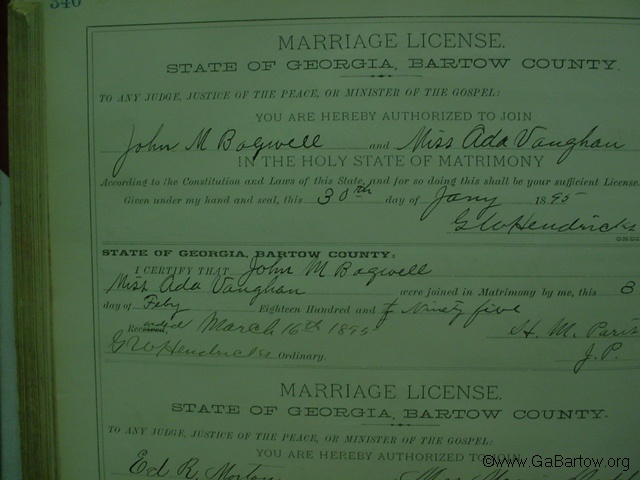 340
MARRIAGE LICENSE.
STATE OF GEORGIA, BARTOW COUNTY.
TO ANY JUDGE, JUSTICE OF THE PEACE, OR MINISTER OF THE GOSPEL:
YOU ARE HEREBY AUTHORIZED TO JOIN
John M Bagwell and Miss Ada Vaughan
IN THE HOLY STATE OF MATRIMONY
According to the Constitution and Laws of this State, and for so doing this shall be your sufficient License.
Given under my hand and seal, this 30th day of Jany 1895
G W Hendricks
STATE OF GEORGIA, BARTOW COUNTY:
I CERTIFY THAT John M Bagwell
Miss Ada Vaughan were joined in Matrimony by me, this 3
day of Feby Eighteen Hundred and Ninety five
Recorded March 16th 1895 H. M. Paris
G W Hendricks Ordinary. J. P.
MARRIAGE LICENSE.
STATE OF GEORGIA, BARTOW COUNTY.
TO ANY JUDGE, JUSTICE OF THE PEACE, OR MINISTER OF THE GOSPEL:
YOU ARE HEREBY AUTHORIZED TO JOIN
Ed R. Morton Miss
©www.GaBartow.org